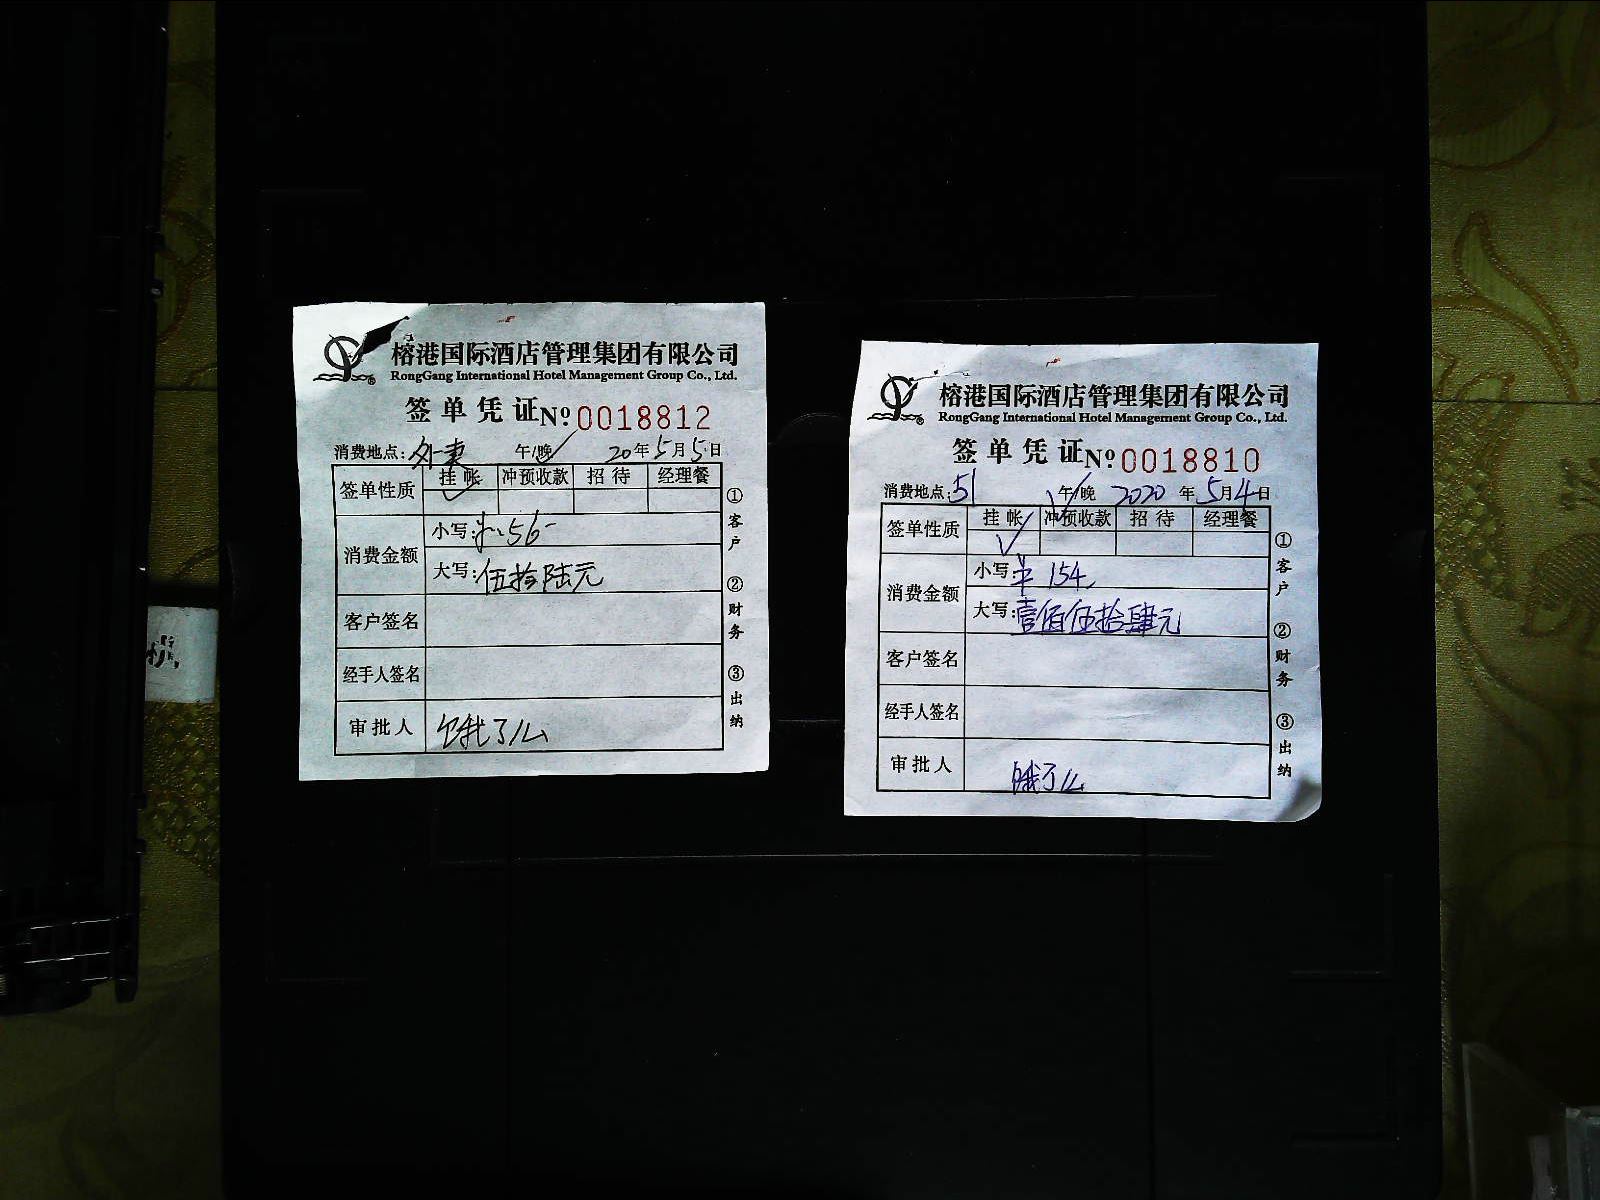 榕港国际酒店管理集团有限公司
RongGang International Hotel Management Group Co., Ltd.
签单凭证 Nº 0018812
消费地点: 外卖 午/晚 20年5月5日
签单性质 挂帐 冲预收款 招待 经理餐
消费金额
小写: ¥: 56-
大写: 伍拾陆元
客户签名
经手人签名
审批人 饿了么
①客户 ②财务 ③出纳
榕港国际酒店管理集团有限公司
RongGang International Hotel Management Group Co., Ltd.
签单凭证 Nº 0018810
消费地点: 51 午/晚 2020年5月4日
签单性质 挂帐 冲预收款 招待 经理餐
消费金额
小写: ¥ 154
大写: 壹佰伍拾肆元
客户签名
经手人签名
审批人 饿了么
①客户 ②财务 ③出纳